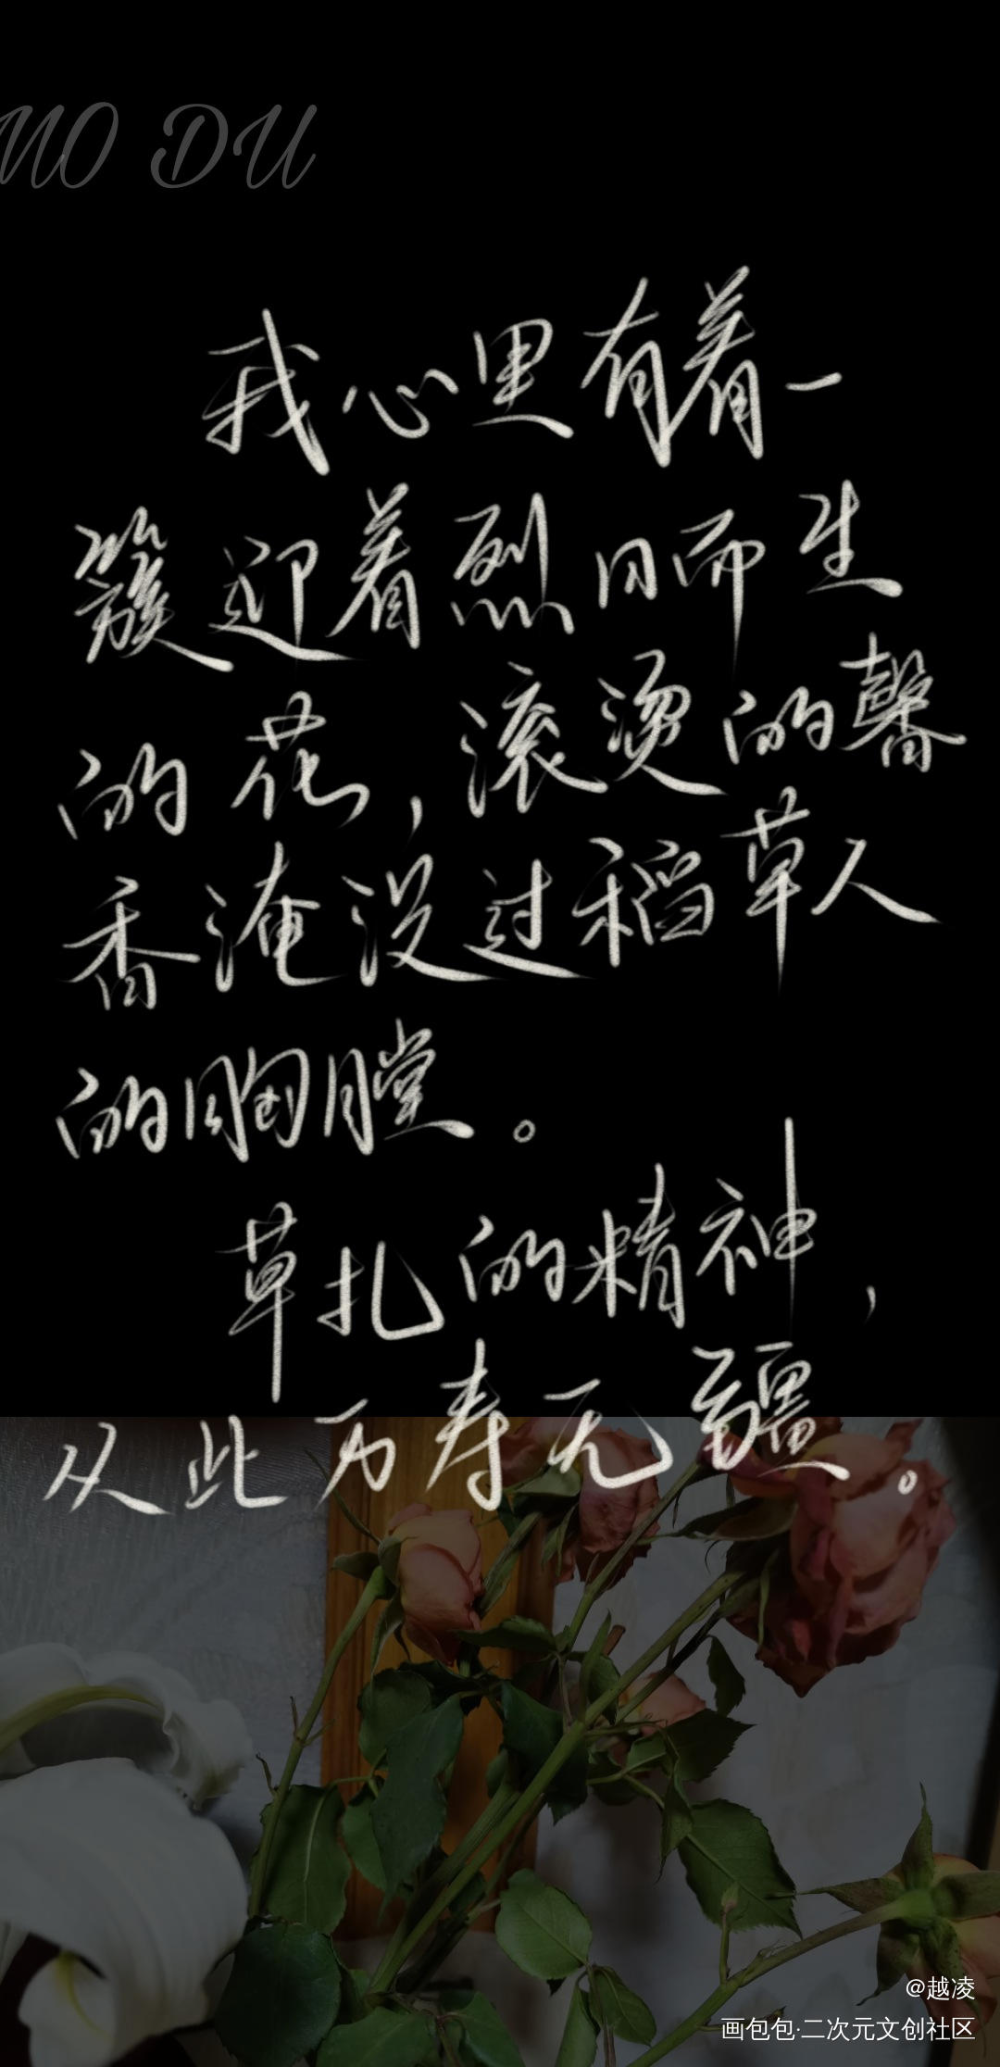 MO DU
我心里有着一
簇迎着烈日而生
的花，滚烫的馨
香淹没过稻草人
的胸膛。
草扎的精神，
从此万寿无疆。
@越凌
画包包·二次元文创社区